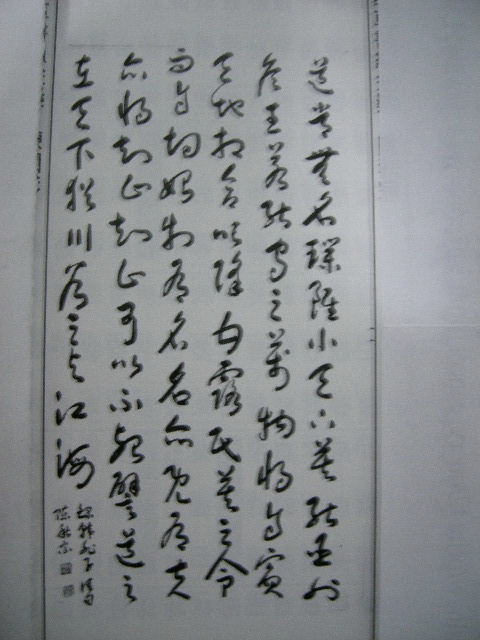 道常無名璞雖小天下莫能臣也
侯王若能守之萬物將自賓
天地相合以降甘露民莫之令
而自均始制有名名亦既有夫
亦將知止知止可以不殆譬道之
在天下猶川谷之與江海